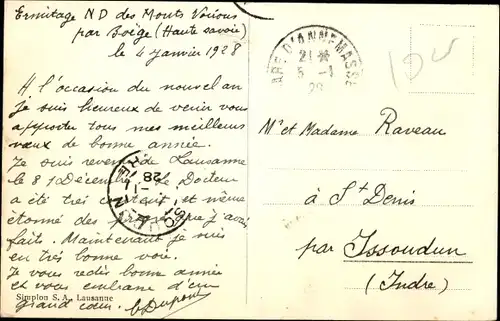 Ermitage N D des Monts Voirons
par Boëge (Haute Savoie)
le 4 Janvier 1928
A l'occasion du nouvel an
je suis heureux de venir vous
apporter tous mes meilleurs
vœux de bonne année.
Je suis revenu de Lausanne
le 31 Décembre le Docteur
a été très content et même
étonné des progrès que j'avais
faits. Maintenant je suis
en très bonne voie.
Je vous redis bonne année
et vous embrasse d'un
grand cœur. Dupont
Simplon S. A. Lausanne
GARE D'ANNEMASSE
21
5 - 1
28
Mr et Madame Raveau
à St Denis
par Issoudun
(Indre)
28